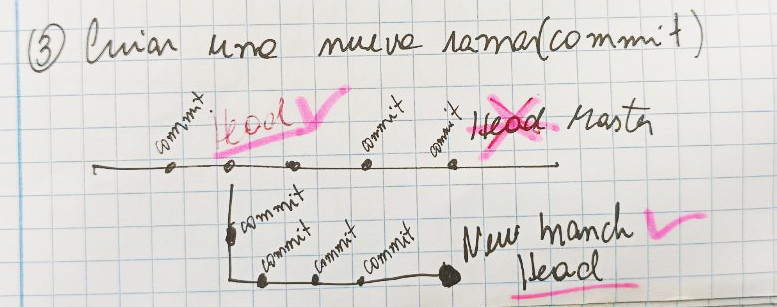 ③ Criar une nueva rama(commit)
commit Head commit commit Head Master
commit
commit commit commit New branch
Head